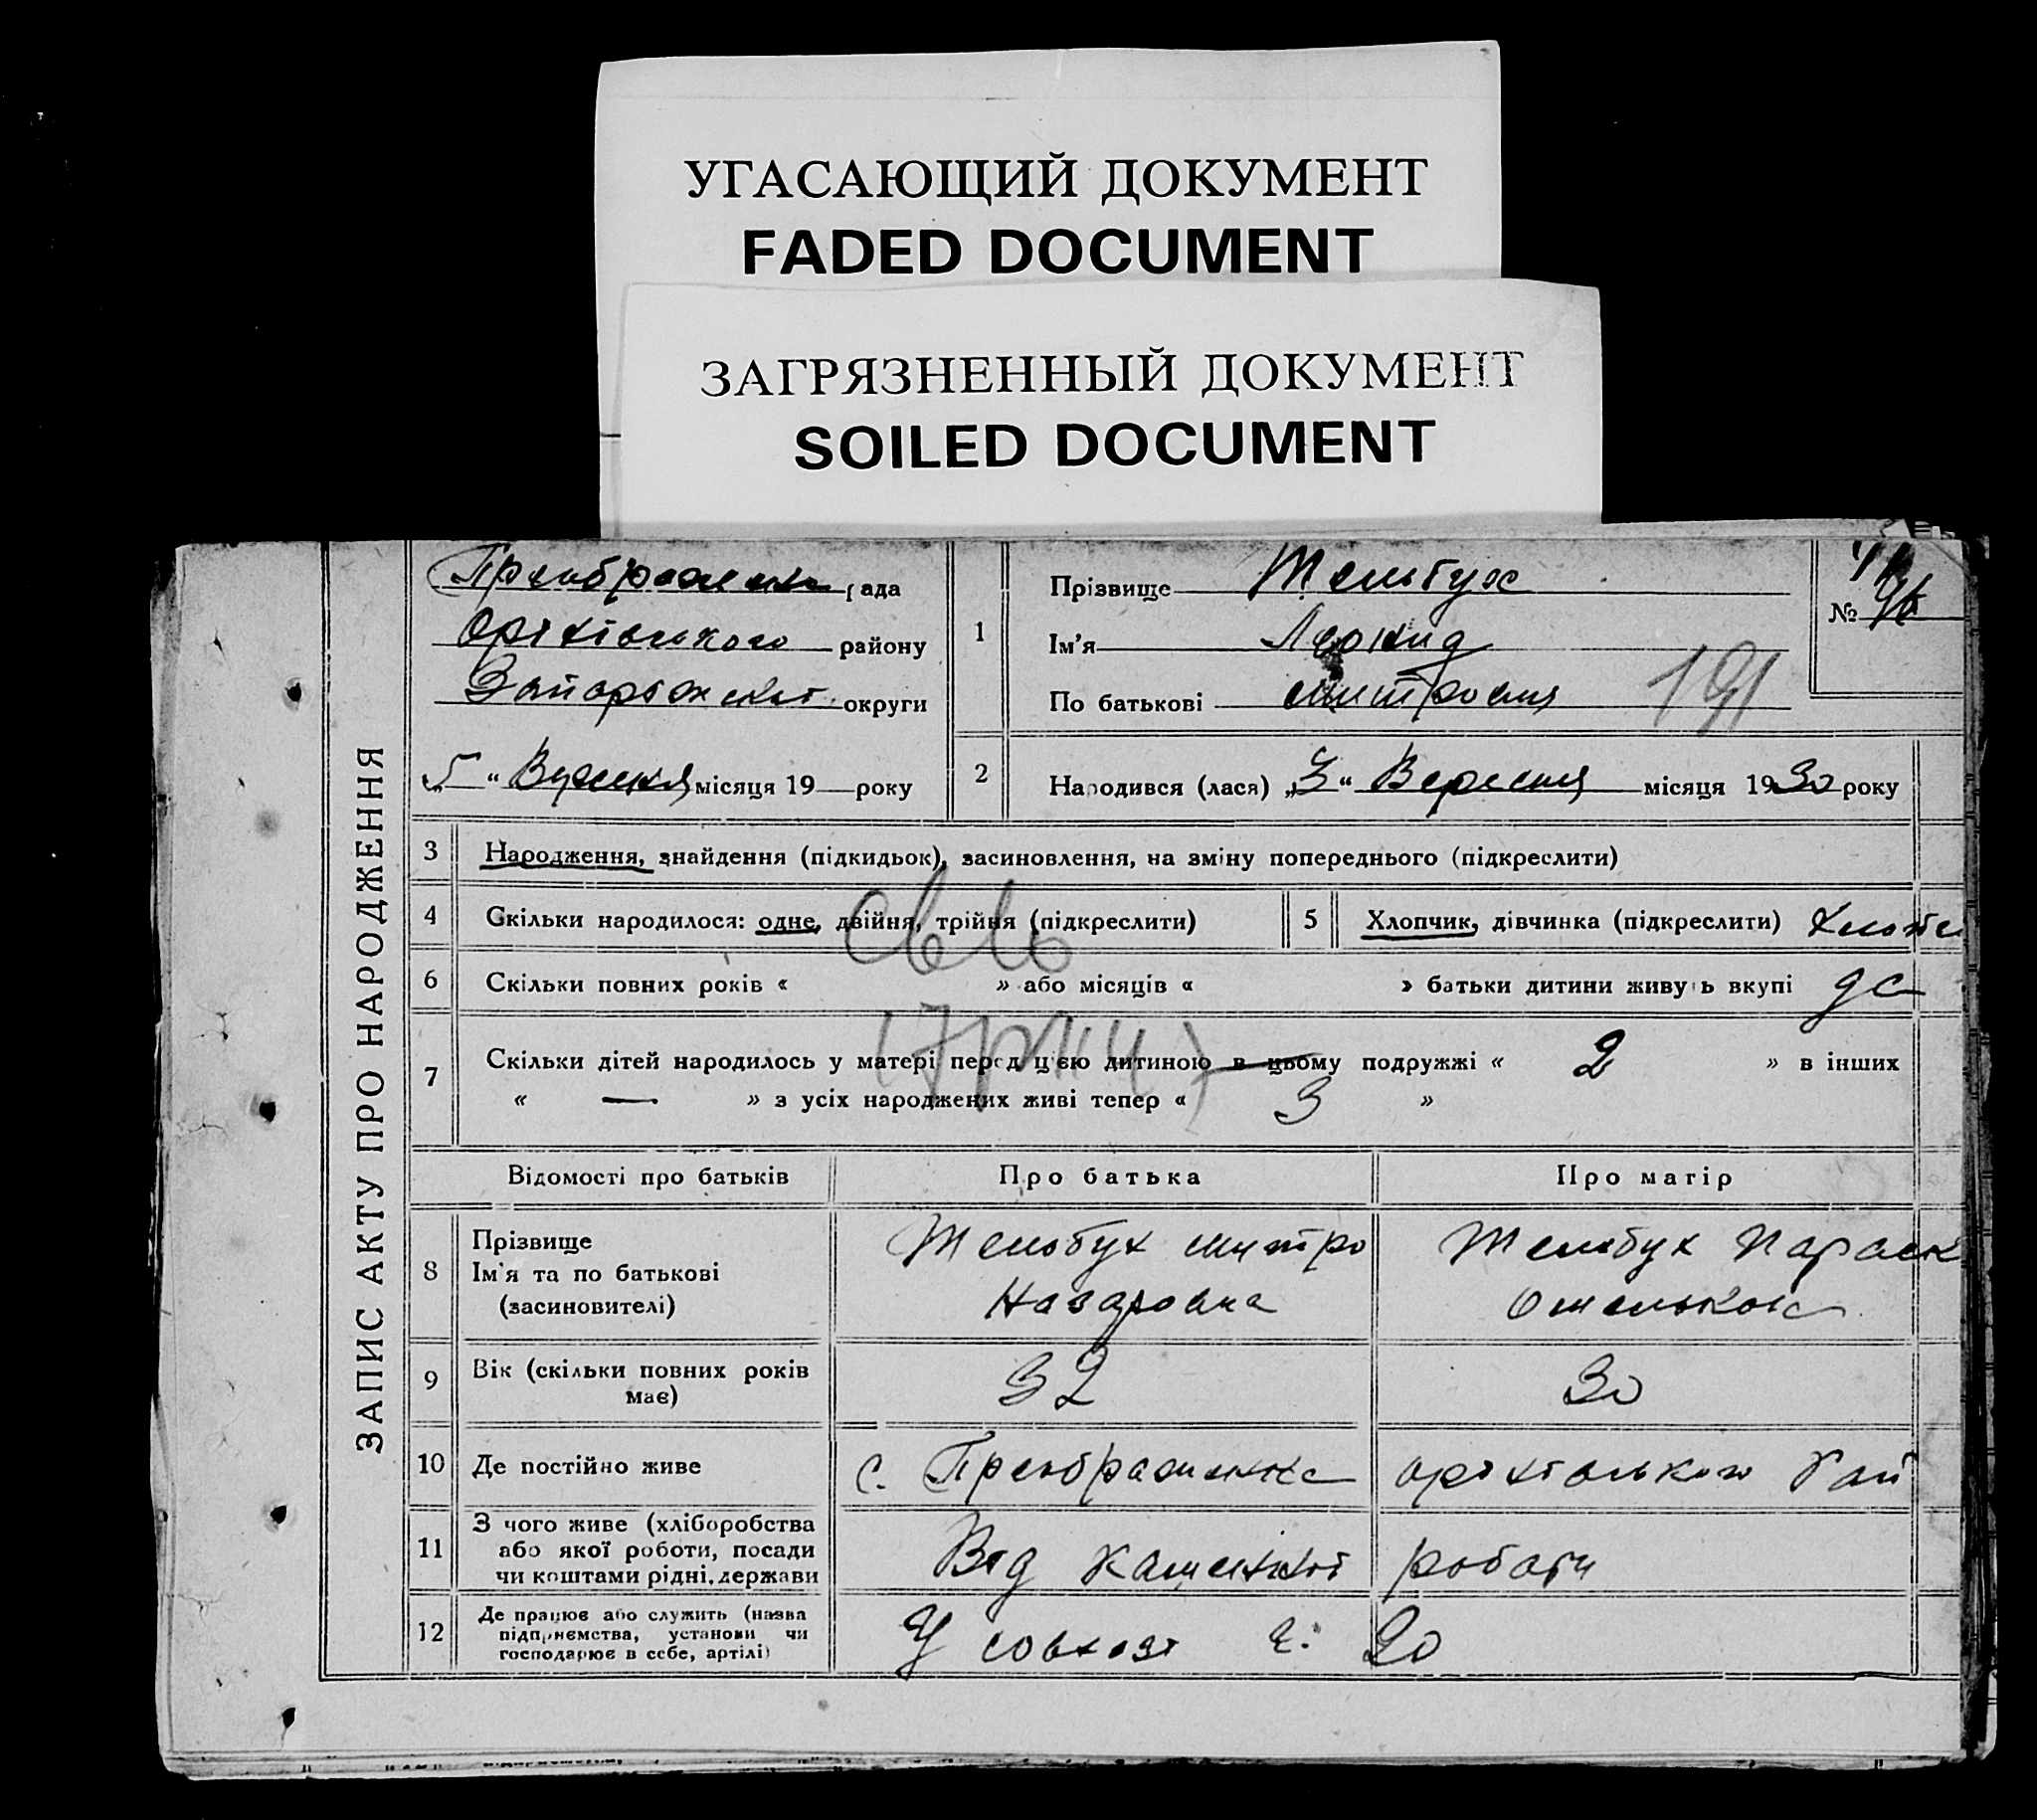 УГАСАЮЩИЙ ДОКУМЕНТ
FADED DOCUMENT
ЗАГРЯЗНЕННЫЙ ДОКУМЕНТ
SOILED DOCUMENT
ЗАПИС АКТУ ПРО НАРОДЖЕННЯ
рада
Оріхівського району
округи
„5“ Вересня місяця 19 року
1
Прізвище Жембух
Ім'я Леонид
По батькові Митрович
191
№ 46
2
Народився (лася) „3“ Вересня місяця 1930 року
3 Народження, знайдення (підкидьок), засиновлення, на зміну попереднього (підкреслити)
4 Скільки народилося: одне, двійня, трійня (підкреслити)
5 Хлопчик, дівчинка (підкреслити)
6 Скільки повних років « » або місяців « » батьки дитини живуть вкупі
7 Скільки дітей народилось у матері перед цією дитиною в цьому подружжі « 2 » в інших
« — » з усіх народжених живі тепер « 3 »
Відомості про батьків Про батька Про матір
8 Прізвище
Ім'я та по батькові
(засиновителі)
Митро
9 Вік (скільки повних років має) 32 30
10 Де постійно живе с. Преображенка Оріхівського Рай
11 З чого живе (хліборобства
або якої роботи, посади
чи коштами рідні, держави
Від роботи
12 Де працює або служить (назва
підприємства, установи чи
господарює в себе, артілі)
У совхозі 20